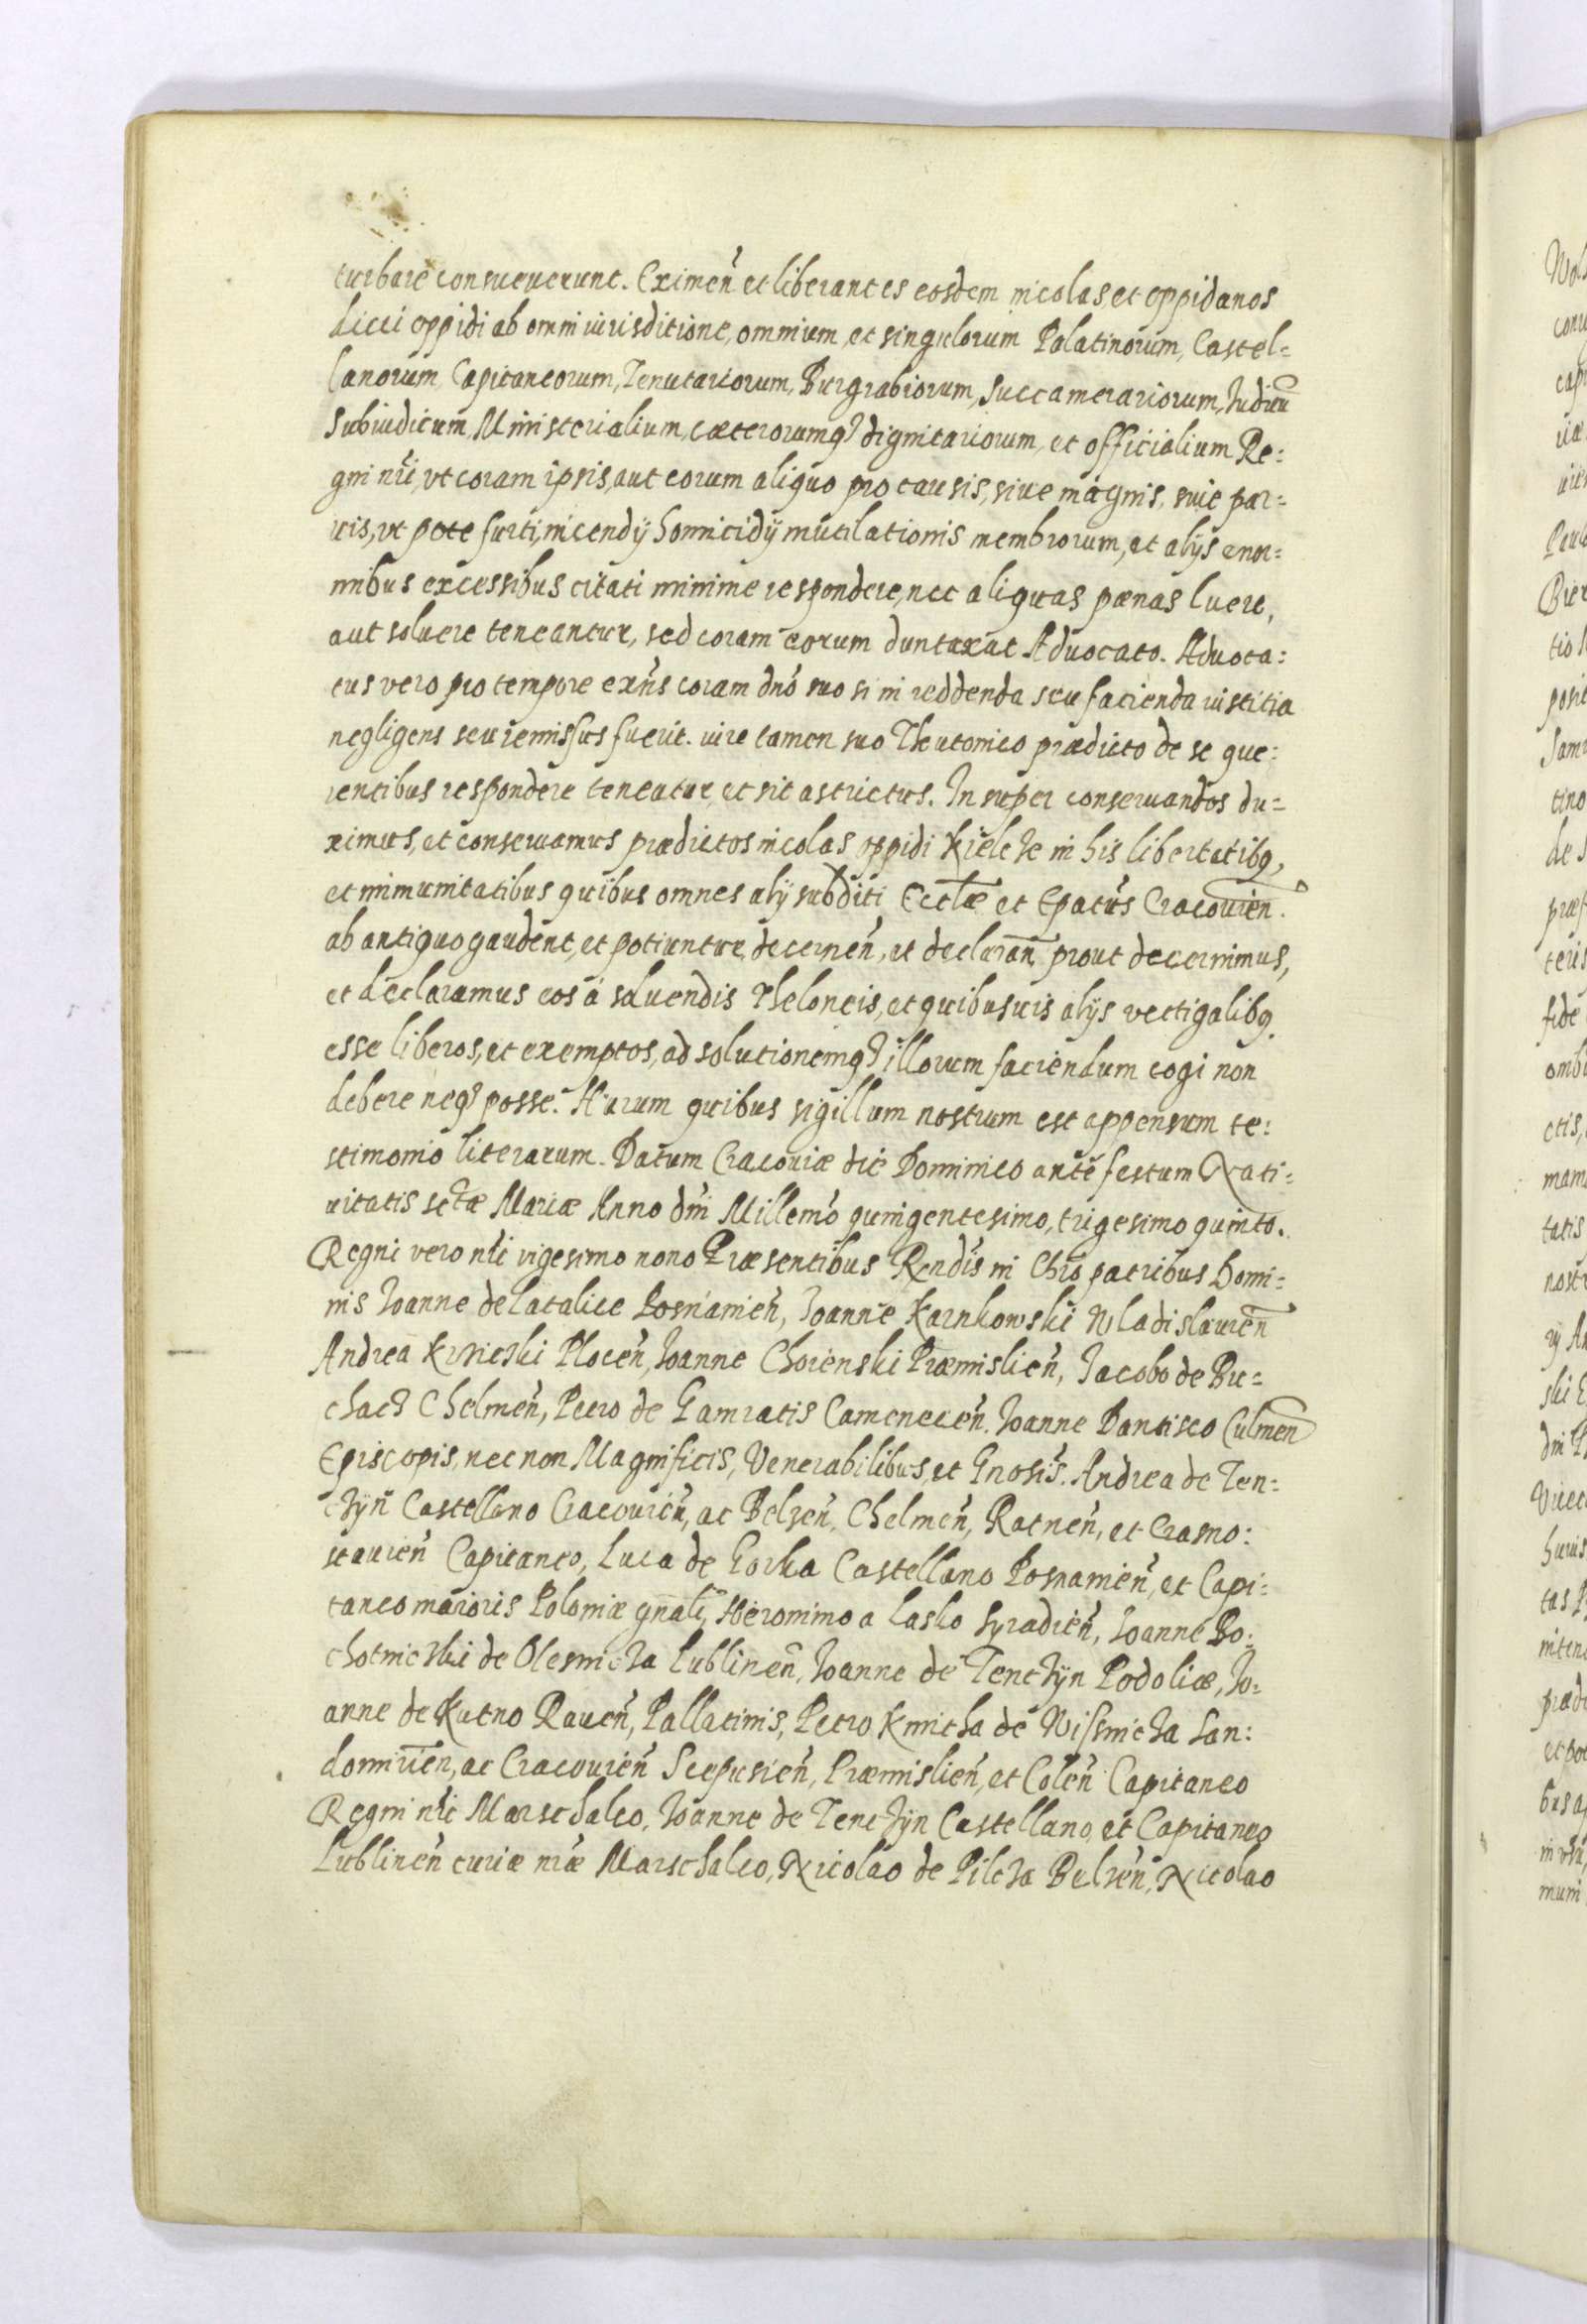 turbare consueuerunt. Eximen̄ et liberantes eosdem incolas et oppidanos
dicti oppidi ab omni iurisditione, omnium et singulorum Palatinorum, Castel=
lanorum Capitaneorum, Tenutariorum, Burgrabiorum, Succamerariorum, Iudicū
Subiudicum, Ministerialium, cæterorumq₃ dignitariorum, et officialium Re=
gni nr̄i, vt coram ipsis, aut eorum aliquo pro causis, siue magnis, siue par=
uis, vt pote furti, incendij homicidij mutilationis membrorum, et alijs enor=
mibus excessibus citati minime respondere, nec aliquas pænas luere,
aut soluere teneantur, sed coram eorum duntaxat Aduocato. Aduoca=
tus vero pro tempore exn̄s coram dnō suo si in reddenda seu facienda iustitia
negligens seu remissus fuerit. iure tamen suo Theutonico prædicto de se que=
rentibus respondere teneatur, et sit astrictus. Insuper conseruandos du=
ximus, et conseruamus prædictos incolas oppidi Kielcze in his libertatibq,
et immunitatibus quibus omnes alij subditi Eccl̄æ et Epatūs Cracouien̄.
ab antiquo gaudent, et potiuntur, decernen̄, et declaran̄ prout decernimus,
et declaramus eos á soluendis Theloneis, et quibusuis alijs vectigalibq
esse liberos, et exemptos, ad solutionemq₃ illorum faciendum cogi non
debere neq₃ posse. Harum quibus sigillum nostrum est appensum te=
stimonio literarum. Datum Cracouiæ die Dominico ante festum Nati=
uitatis sctæ Mariæ Anno dn̄i Millemō quingentesimo, trigesimo quinto.
Regni vero nr̄i vigesimo nono Præsentibus Rendīs in Chrō patribus Domi=
nis Ioanne de Latalice Posnanien̄, Ioanne Karnkowski Wladislauien̄
Andrea Krzicski Plocen̄, Ioanne Choienski Præmislien̄, Iacobo de Bu=
chacz Chelmen̄, Petro de Gamratis Camenecen̄. Ioanne Dantisco Culmen̄
Episcopis, nec non Magnificis, Venerabilibus, et Gnosīs. Andrea de Ten=
czyn Castellano Cracouien̄, ac Belzen̄, Chelmen̄, Ratnen̄, et Crasno=
stauien̄ Capitaneo, Luca de Gorka Castellano Posnanien̄, et Capi=
taneo maioris Poloniæ gn̄ali, Hieronimo a Lasko Syradien̄, Ioanne Po=
chotnicski de Olesnicza Lublinen̄, Ioanne de Tenczyn Podoliæ, Io=
anne de Kutno Rauen̄, Pallatinis, Petro Kmitha de Wissnicza San=
domirien̄, ac Cracouien̄ Scepusien̄, Præmislien̄, et Colen̄ Capitaneo
Regni nr̄i Marschalco, Ioanne de Tenczyn Castellano, et Capitaneo
Lublinen̄ curiæ nr̄æ Marschalco, Nicolao de Pilcza Belzen̄, Nicolao